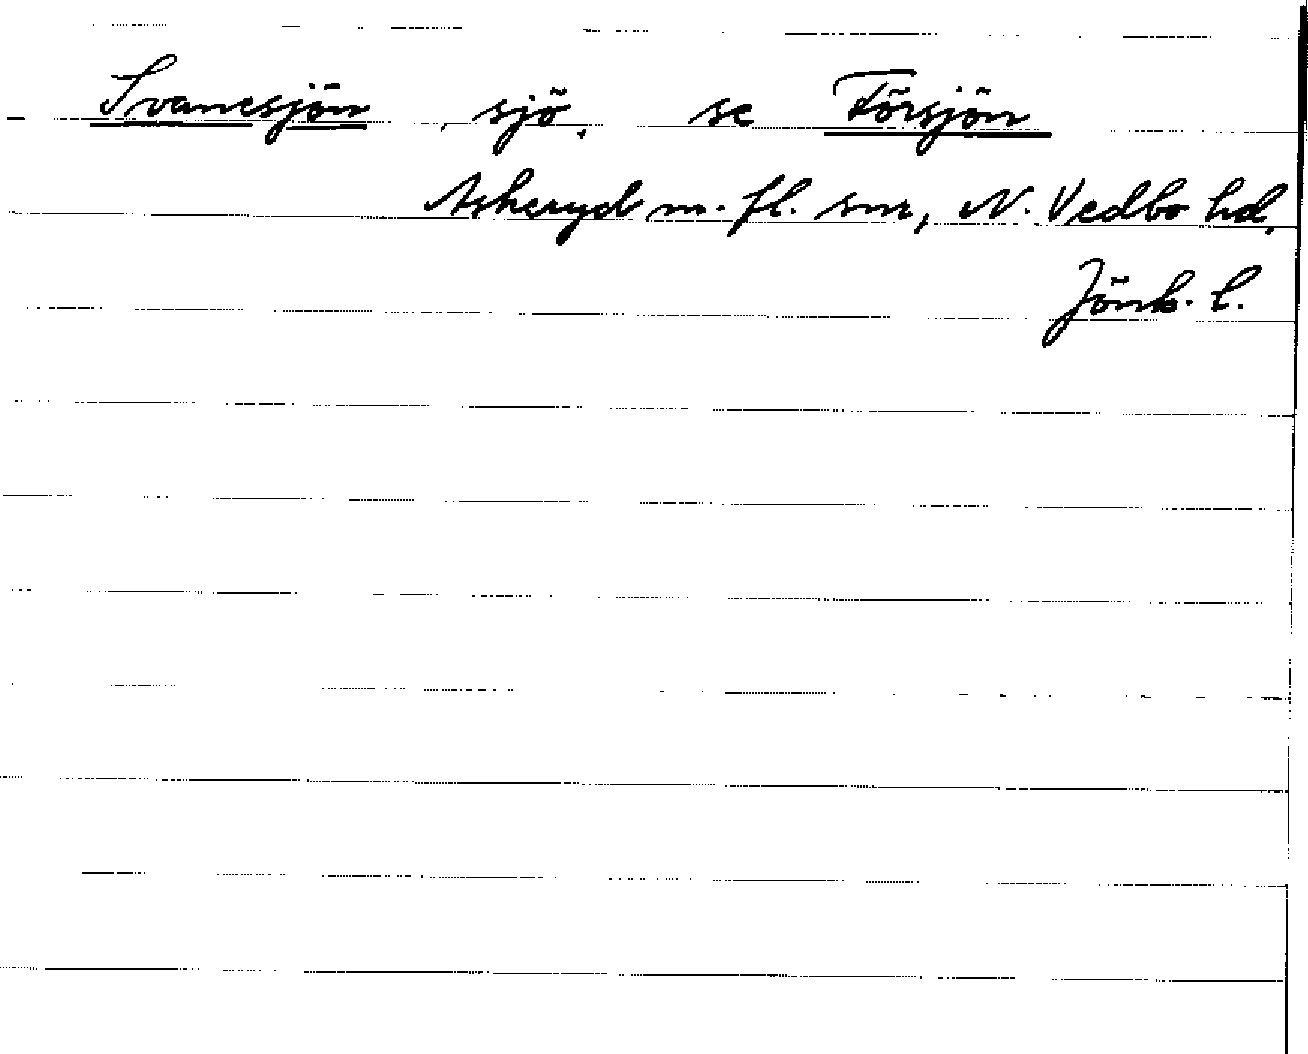 Svanesjön, sjö, se Försjön
Askeryd m. fl. snr, N. Vedbo hd,
Jönk. l.